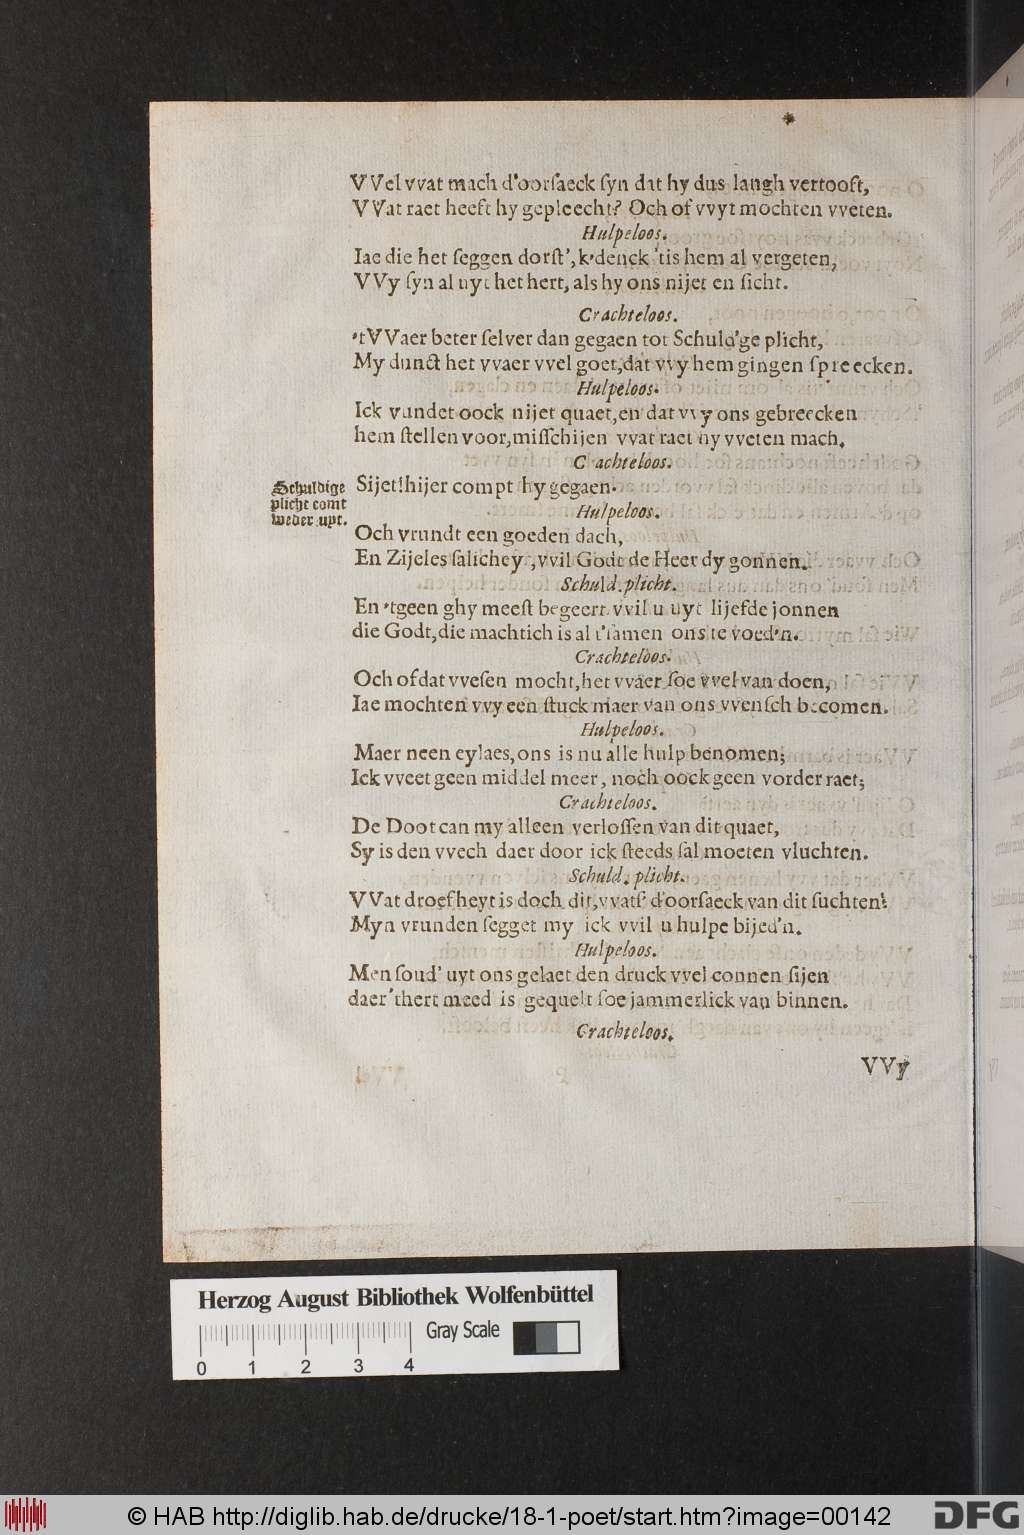 VVel vvat mach d'oorſaeck ſyn dat hy dus langh vertooft,
VVat raet heeft hy gepleecht? Och of vvyt mochten vveten.
Hulpeloos.
Iae die het ſeggen dorſt', k'denck 'tis hem al vergeten,
VVy ſyn al uyt het hert, als hy ons nijet en ſicht.
Crachteloos.
'tVVaer beter ſelver dan gegaen tot Schuld'ge plicht,
My dunct het vvaer vvel goet, dat vvy hem gingen ſpreecken.
Hulpeloos.
Ick vandet oock nijet quaet, en dat vvy ons gebreecken
hem ſtellen voor, miſſchijen vvat raet hy vveten mach.
C achteloos.
Schuldige
plicht comt
weder uyt.
Sijet! hijer compt hy gegaen.
Hulpeloos.
Och vrundt een goeden dach,
En Zijeles ſalichey , vvil Godt de Heer dy gonnen.
Schuld. plicht.
En 'tgeen ghy meeſt begeert vvil u uyt lijefde jonnen
die Godt, die machtich is al t'ſamen ons te voed'n.
Crachteloos.
Och of dat vveſen mocht, het vvaer ſoe vvel van doen,
Iae mochten vvy een ſtuck maer van ons vvenſch becomen.
Hulpeloos.
Maer neen eylaes, ons is nu alle hulp benomen;
Ick vveet geen middel meer, noch oock geen vorder raet;
Crachteloos.
De Doot can my alleen verloſſen van dit quaet,
Sy is den vvech daer door ick ſteeds ſal moeten vluchten.
Schuld. plicht.
VVat droefheyt is doch dit, vvatſ' d'oorſaeck van dit ſuchten?
Myn vrunden ſegget my ick vvil u hulpe bijed'n.
Hulpeloos.
Men ſoud' uyt ons gelaet den druck vvel connen ſijen
daer 'thert meed is gequelt ſoe jammerlick van binnen.
Crachteloos.
VVy
Herzog August Bibliothek Wolfenbüttel
Gray Scale
0 1 2 3 4
© HAB http://diglib.hab.de/drucke/18-1-poet/start.htm?image=00142
DFG